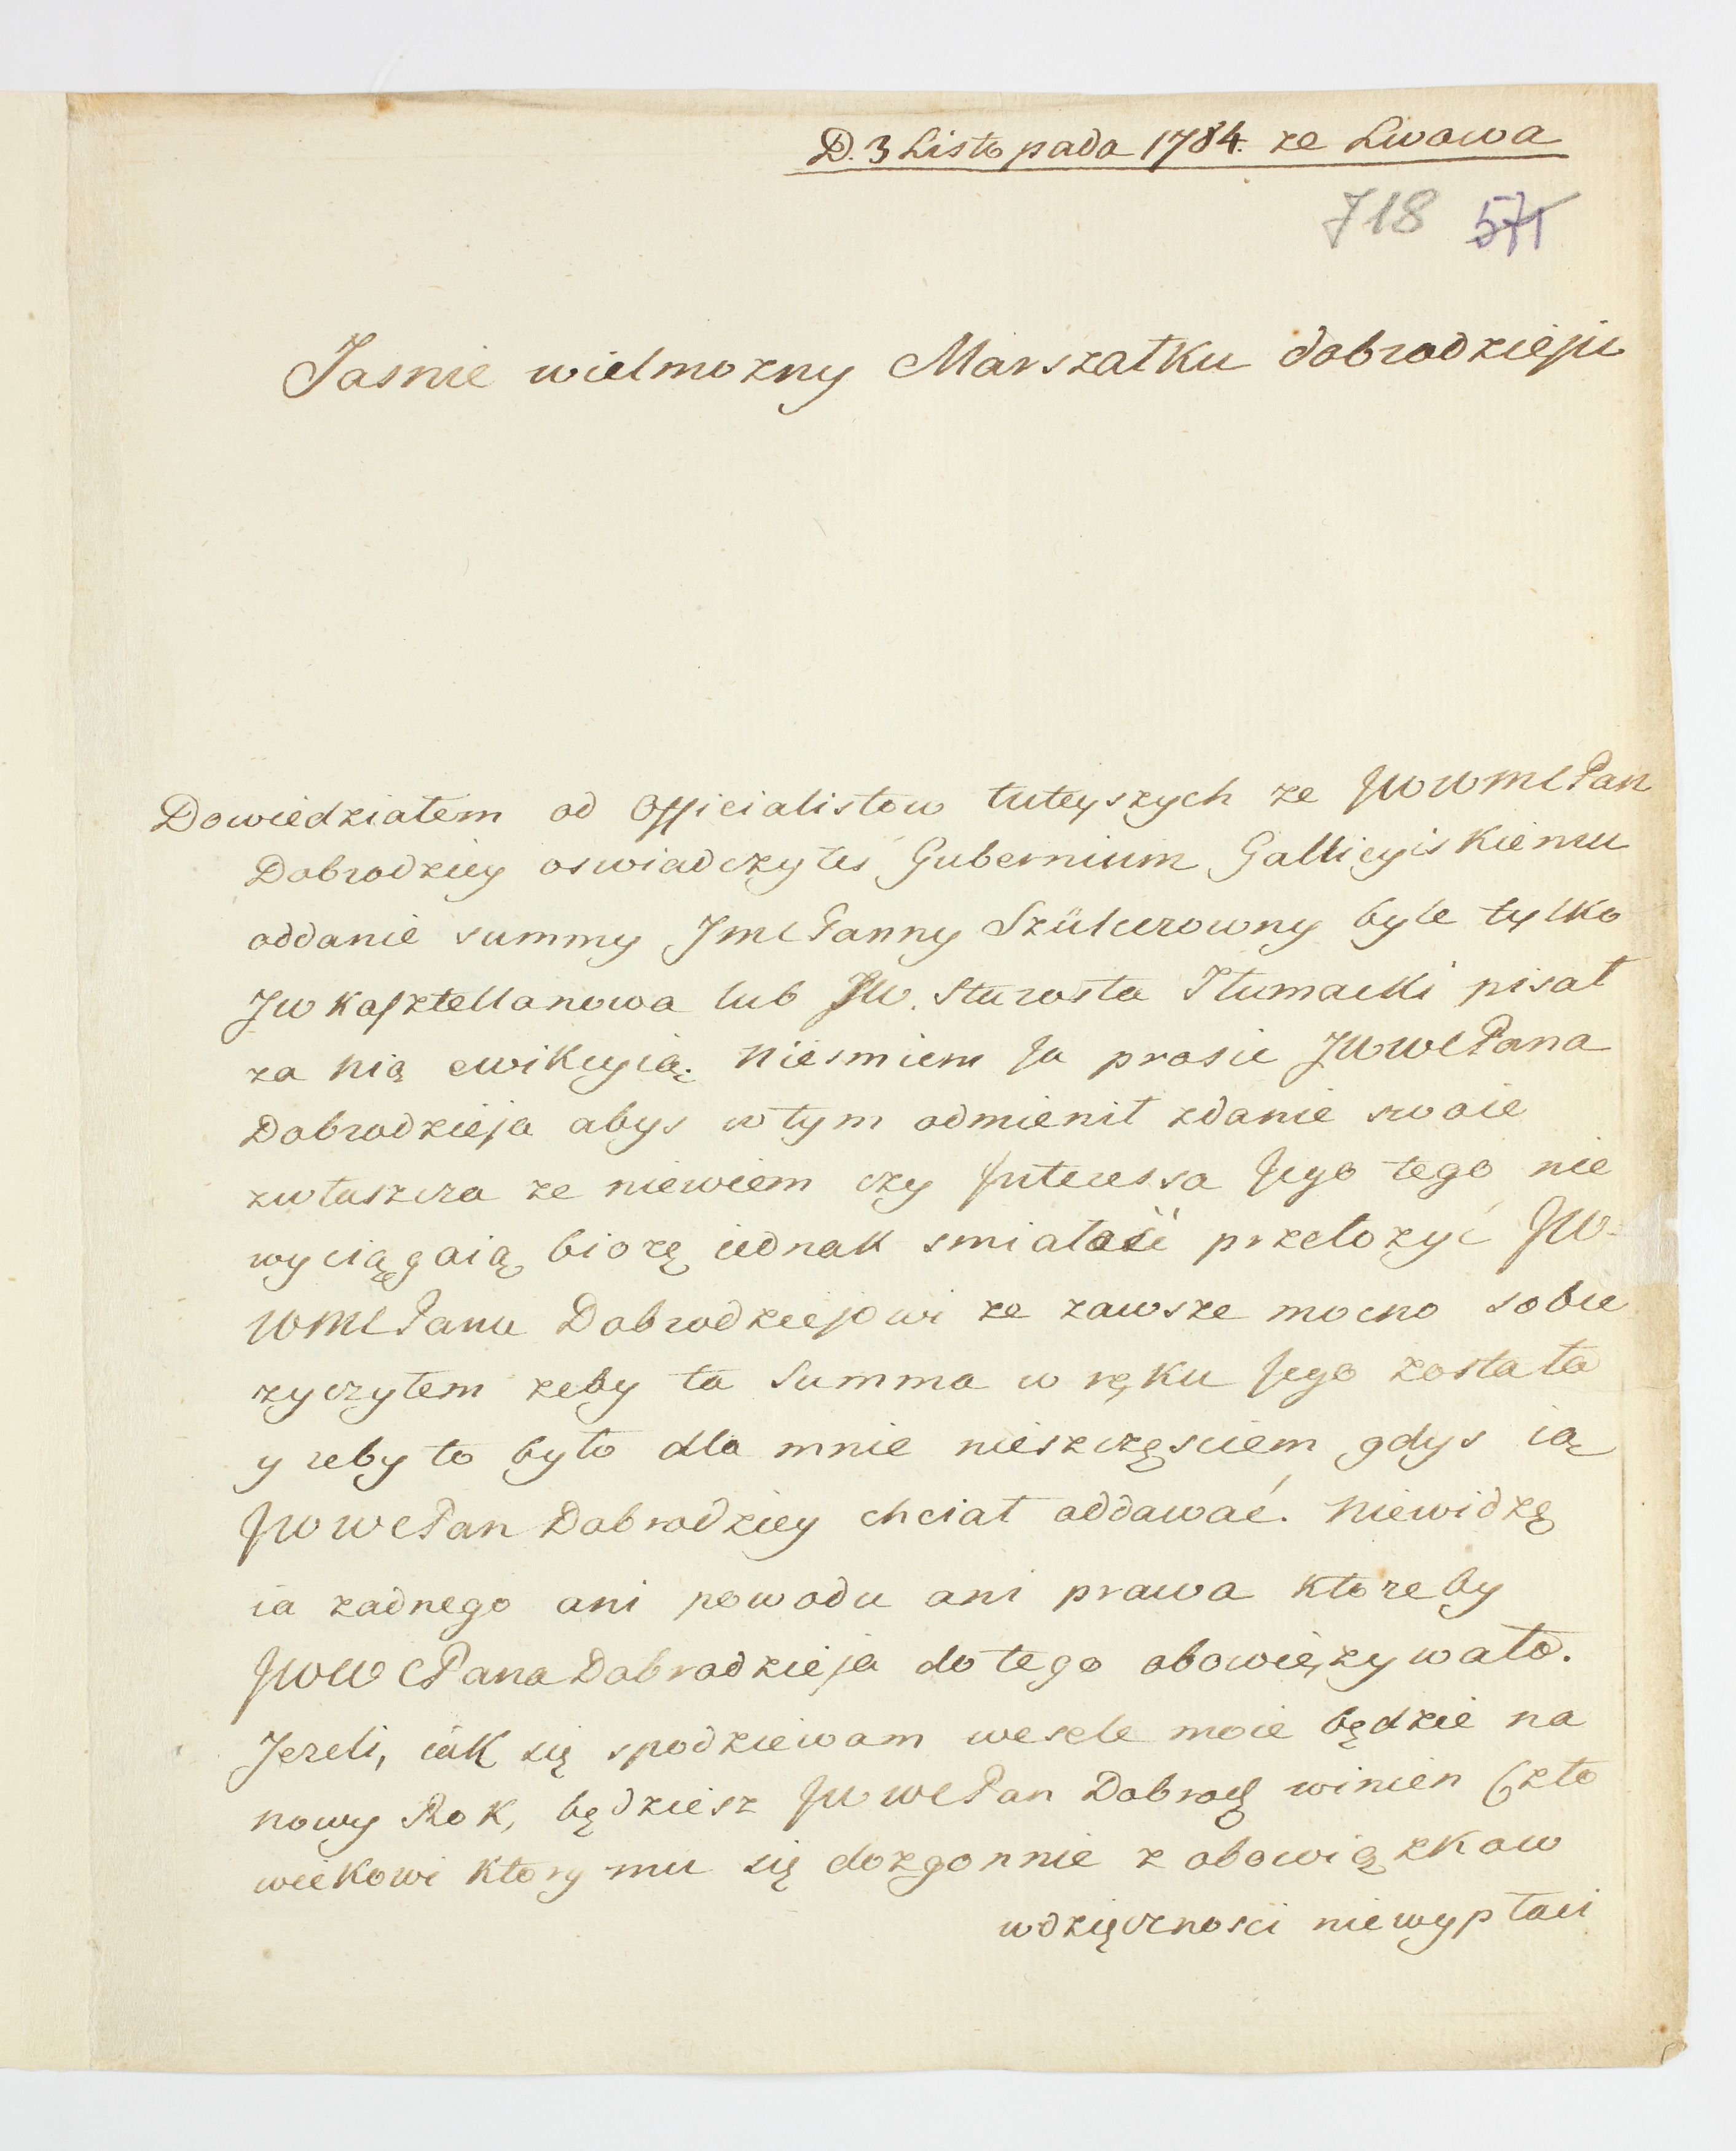 D. 3 Listopada 1784. ze Lwowa
718 571
Jasnie wielmozny Marszałku dobrodzieju
Dowiedziałem od Officialistow tuteyszych ze JWWMCPan
Dobrodziey oswiadczyłes Gubernium Gallicyiskiemu
oddanie summy JMCPanny Szülerowny byle tylko
JW Kasztellanowa lub JW. Starosta Tłumacki pisał
za nią ewikcyią. Niesmiem Ja prosic JWWCPana
Dobrodzieja abys w tym odmienił zdanie swoie
zwłaszcza ze niewiem czy Interessa Jego tego nie
wyciągaią biorę iednak smiałość przełozyć JW-
WMCPanu Dobrodziejowi ze zawsze mocno sobie
zyczyłem zeby ta Summa w ręku Jego została
y zeby to było dla mnie nieszczęsciem gdys ią
JWWCPan Dobrodziey chciał oddawać. Niewidzę
ia zadnego ani powodu ani prawa ktoreby
JWWCPana Dobrodzieja do tego obowięzywało.
Jezeli, iak się spodziewam wesele moie będzie na
nowy Rok, będziesz JWWCPan Dobrodz winien Czło
wiekowi ktory mu się dozgonnie z obowiązkow
wdzięcznosci niewypłaci